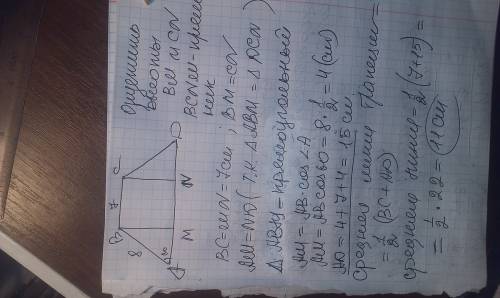 Опустить
высоты
BM и CN
BCNM - прям
ник
B 7 C
8
60
A M N D
BC = MN = 7см; BM = CN
AM = ND (т.к. ΔABM = ΔDCN)
ΔABM - прямоугольный
AM = AB·cos∠A
AM = AB cos60 = 8·1/2 = 4 (см)
AD = 4+7+4 = 15 см
Средняя линия трапеции =
= 1/2 (BC+AD)
средняя линия = 1/2 (7+15) =
= 1/2 · 22 = 11 см